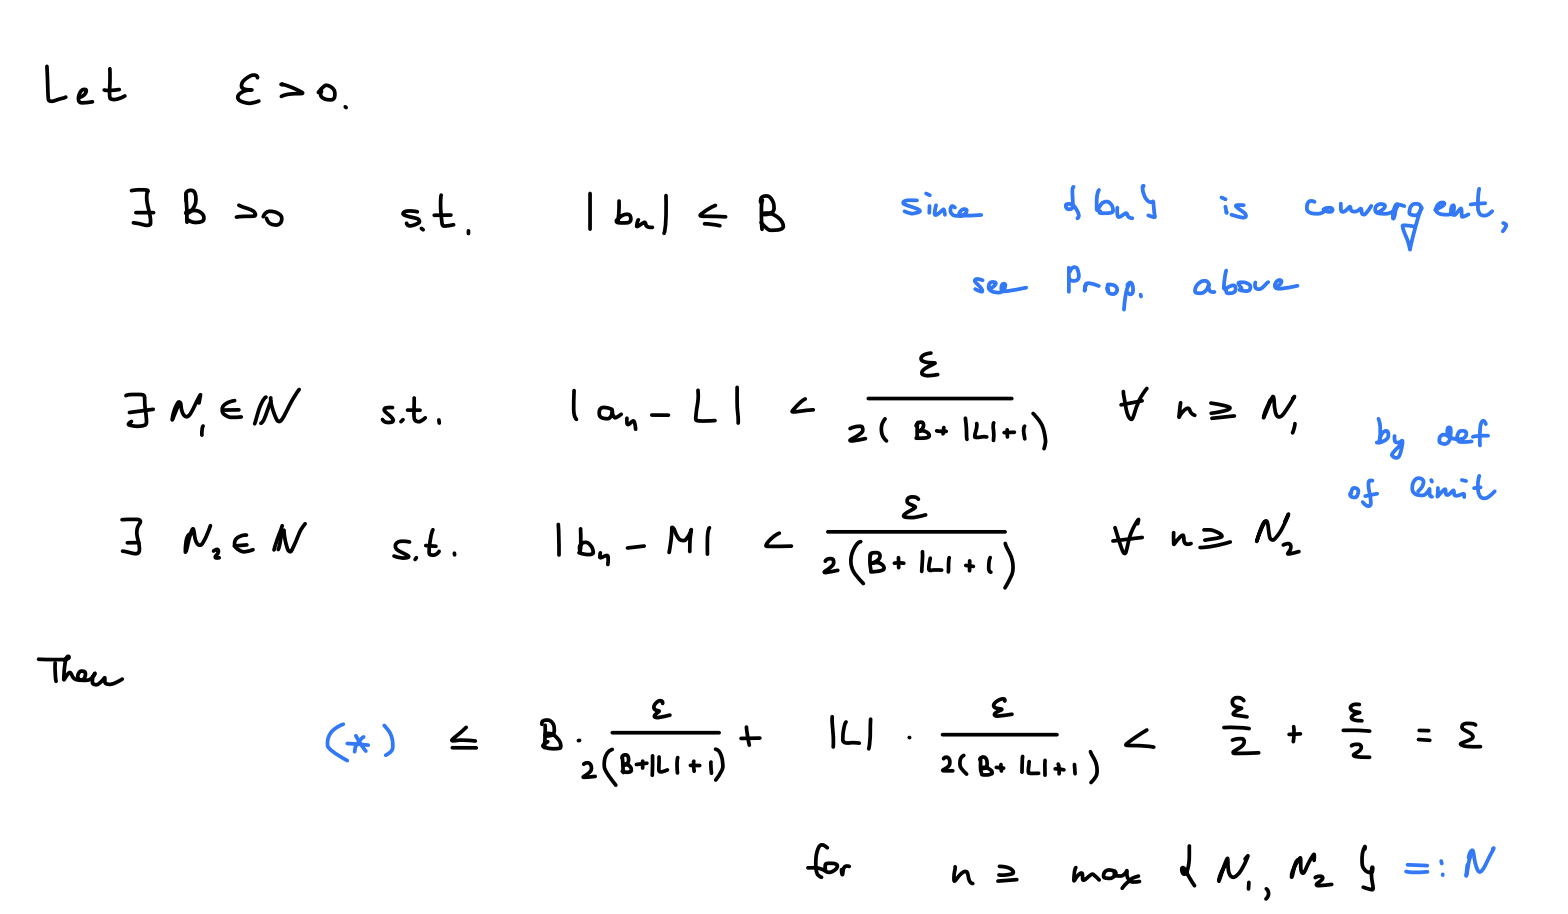 Let ε > 0.
∃ B > 0 s.t. |bₙ| ≤ B since {bₙ} is convergent,
see Prop. above
∃ N₁ ∈ ℕ s.t. |aₙ - L| < ε / 2(B + |L| + 1) ∀ n ≥ N₁
by def
of limit
∃ N₂ ∈ ℕ s.t. |bₙ - M| < ε / 2(B + |L| + 1) ∀ n ≥ N₂
Then
(*) ≤ B · ε / 2(B + |L| + 1) + |L| · ε / 2(B + |L| + 1) < ε/2 + ε/2 = ε
for n ≥ max {N₁, N₂} =: N